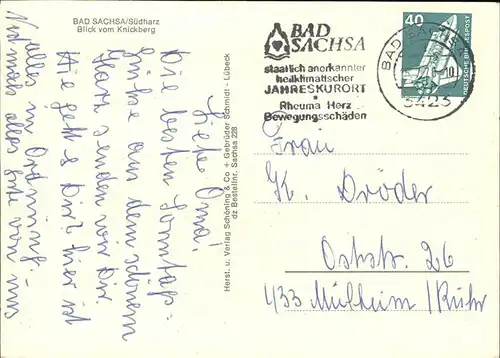 BAD SACHSA/Südharz
Blick vom Knickberg
Liebe Oma!
Die besten Sonntags-
grüße aus dem schönem
Harz senden wir Dir
Wie geht's Dir? hier ist
alles in Ordnung.
alles gute von uns
Herst. u. Verlag Schöning & Co + Gebrüder Schmidt - Lübeck
dz Bestellnr. Sachsa 228
BAD
SACHSA
staatlich anerkannter
heilklimatischer
JAHRESKURORT
Rheuma Herz
Bewegungsschäden
BAD SACHSA
3423
40
DEUTSCHE BUNDESPOST
Frau
K. Dröder
Oststr. 26
433 Mülheim/Ruhr